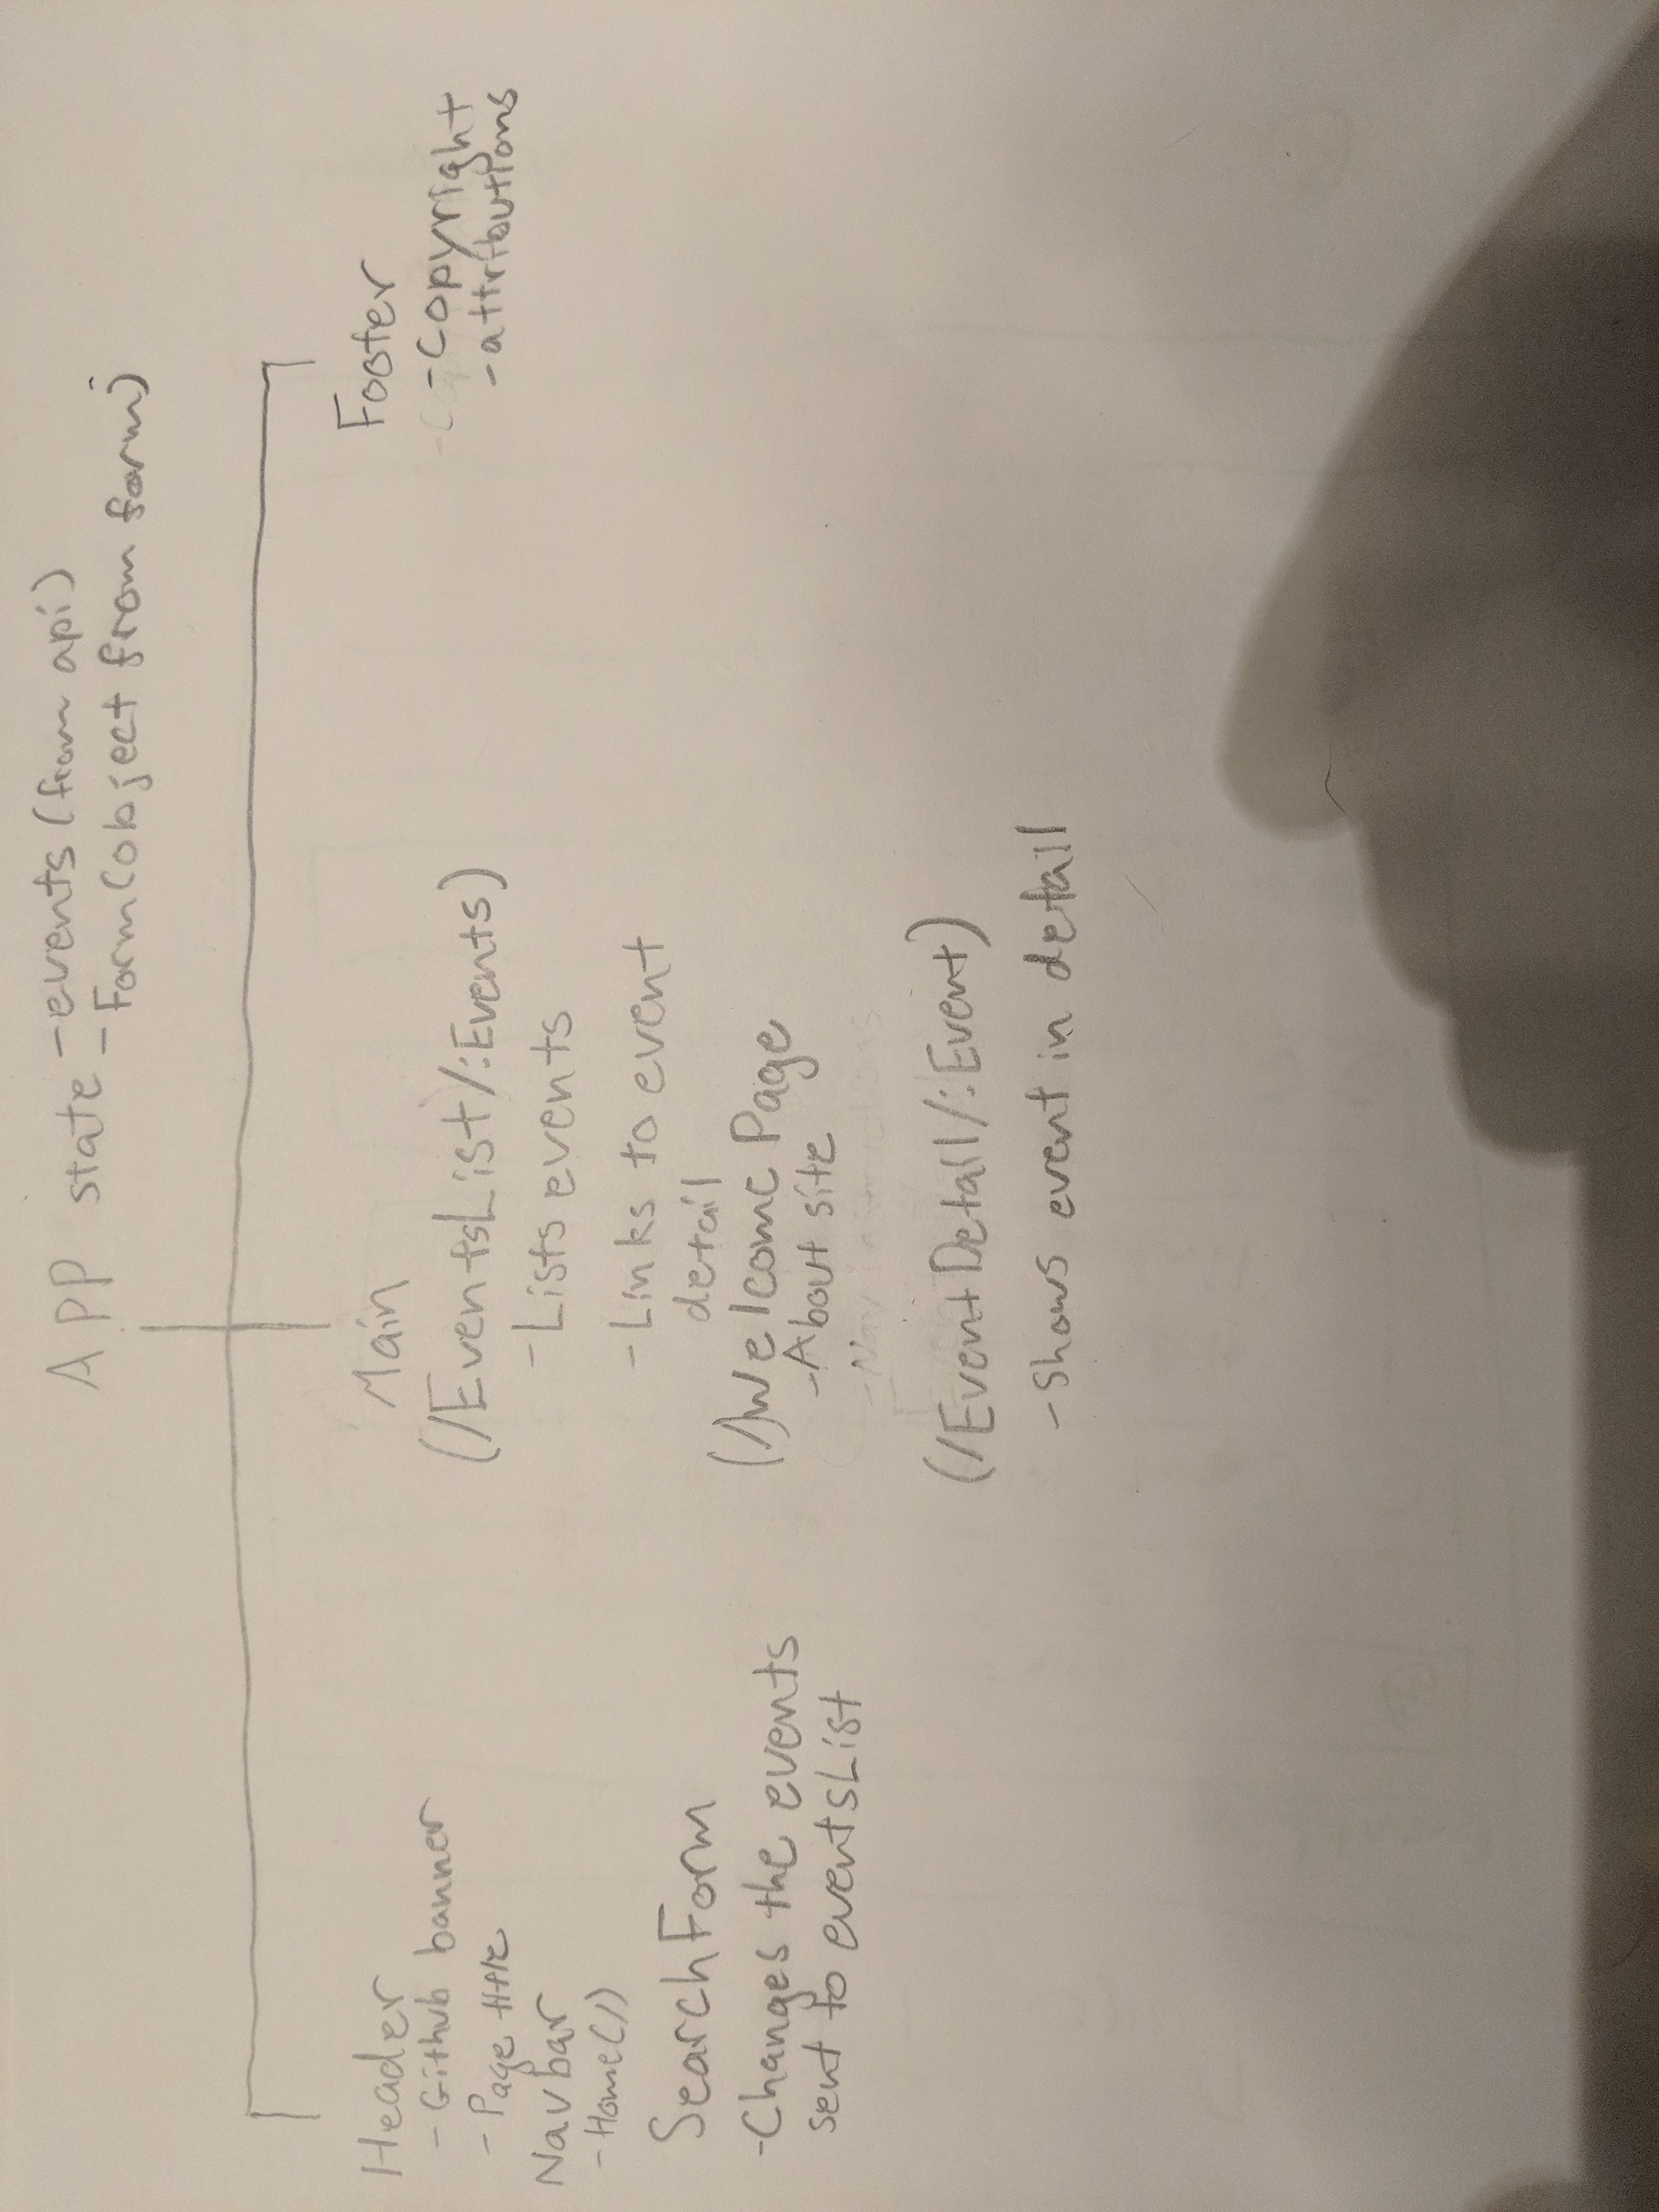 APP
state - events (from api)
- Form (object from form)
Header
- Github banner
- Page title
Navbar
- Home(/)
SearchForm
- Changes the events
sent to eventsList
Main
(/EventsList/:Events)
- Lists events
- Links to event
detail
(/)Welcome Page
- About site
(/EventDetail/:Event)
- Shows event in detail
Footer
- Copyright
- attributions